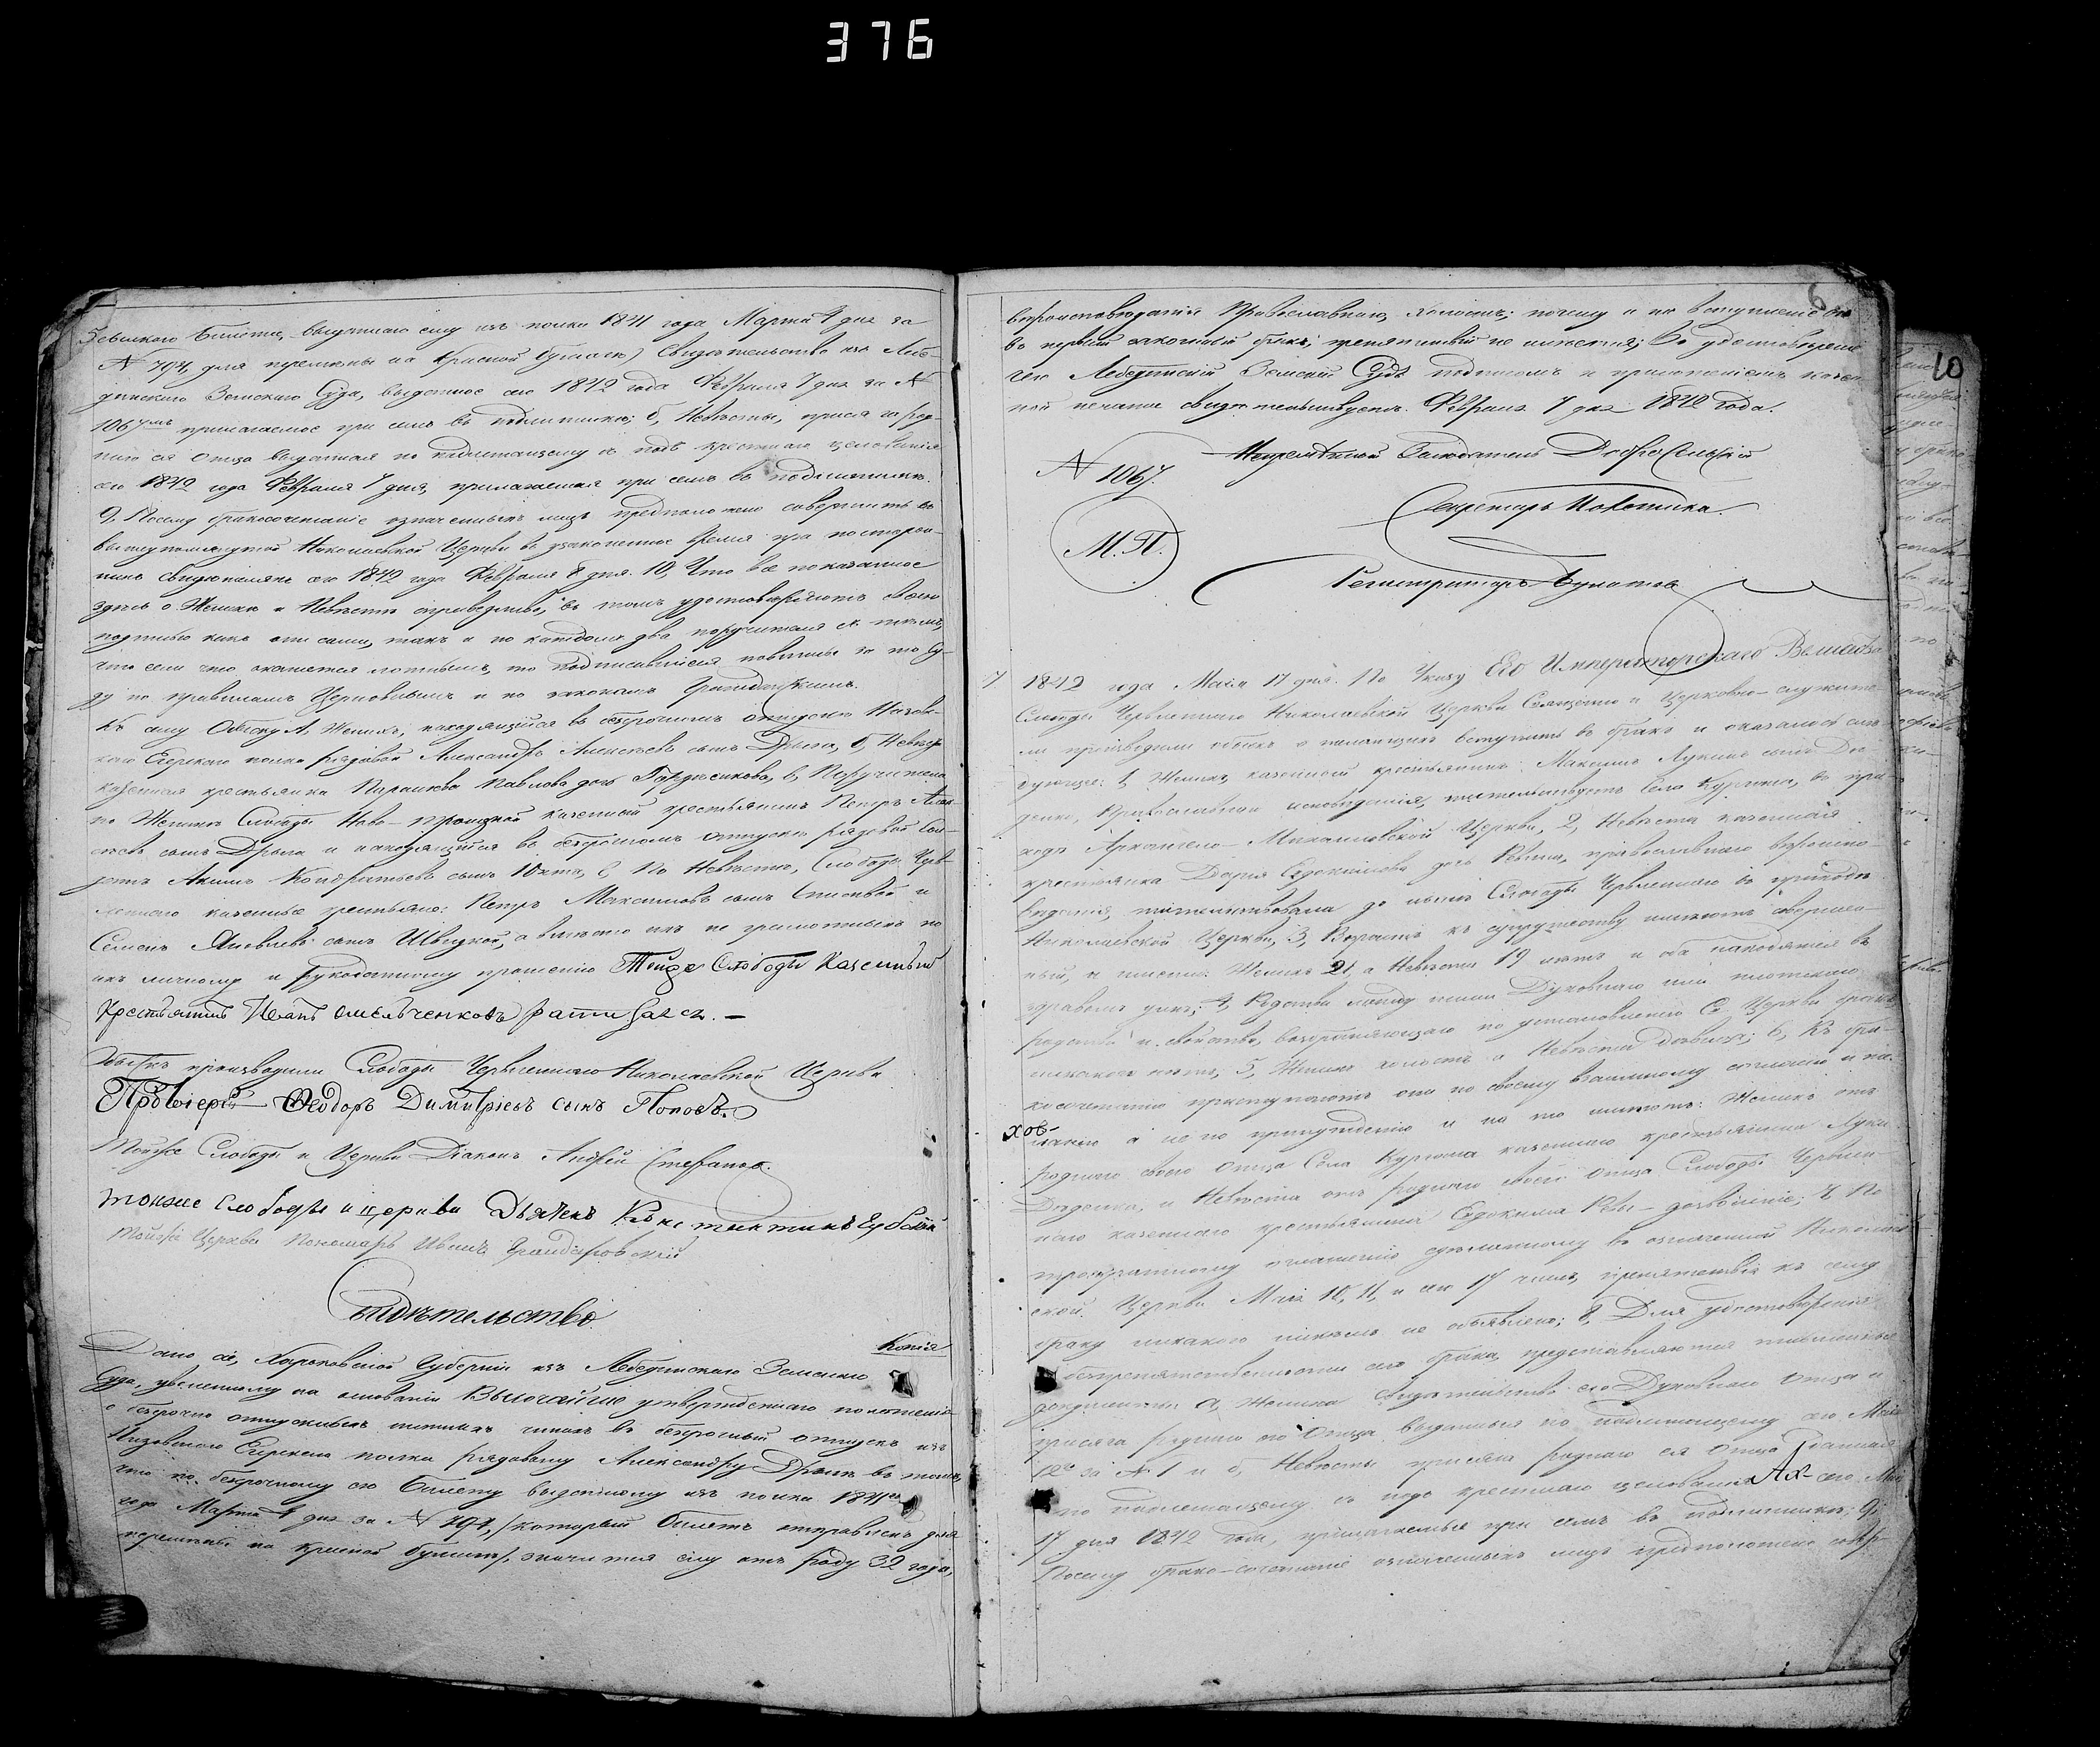 376
билета, выданнаго ему изъ полка 1841 года Марта 4 дня за
N 794, для перемены на красной бумаге) Свидѣтельство изъ Лебе-
динскаго Земскаго Суда, выданное сего 1842 года Февраля 7 дня за N
1067 прилагаемое при семъ въ подлинникѣ; б, Невѣсты, присяга род-
наго ея отца выданная по надлежащему и подъ крестнаго целованія
сего 1842 года Февраля 7 дня, прилагаемая при семъ въ подлинникѣ.
9, Посему бракосочетаніе означенныхъ лицъ предположено совершить въ
вышеупомянутой Николаевской Церкви въ узаконенное время при посторон-
нихъ свидѣтеляхъ сего 1842 года Февраля 8 дня. 10, Что все показанное
здѣсь о Женихѣ и Невѣстѣ справедливо, въ томъ удостовѣряютъ своею
подписью какъ они сами, такъ и по каждомъ два поручителя съ тѣмъ,
что если что окажется ложнымъ, то подписавшіеся повинны за то Су-
ду по правиламъ Церковнымъ и по законамъ Гражданскимъ.
Къ сему Обыску А, Женихъ, находящійся въ безсрочномъ отпуску
Егерскаго полка рядовой Александръ Алексѣевъ сынъ Дрыга, б, Невѣста
казенная крестьянка Параскева Павлова дочь в, Поручители
по Женихѣ Слободы Ново-троицкой казенный крестьянинъ Петръ Алек-
сѣевъ сынъ Дрыга и находящійся въ безсрочномъ отпуску рядовой
Акимъ Кондратьевъ сынъ г, По Невѣстѣ, Слободы Черв-
леннаго казенные крестьяне: Петръ Максимовъ сынъ и
Семенъ Яковлевъ сынъ Швидкой, а вмѣсто ихъ не грамотныхъ по
ихъ личному и рукоданному прошенію Тойже Слободы Казенный
Крестьянинъ Иванъ Омельченковъ росписался. —
Обыскъ производили Слободы Червленнаго Николаевской Церкви
Протоіерей Ѳеодоръ Димитріевъ сынъ Поповъ.
Тойже Слободы и Церкви Діаконъ Андрей Стефановъ.
тойже слободы и церкви Дьячекъ Константинъ
Тойже Церкви Пономарь Иванъ
Свидѣтельство.
Копія
Дано сіе, Харьковской Губерніи изъ Лебединскаго Земскаго
Суда, уволенному на основаніи Высочайше утвержденнаго положенія
о безсрочно отпускныхъ нижнихъ чинахъ въ безсрочный отпускъ изъ
Егерскаго полка рядовому Александру Дрыгѣ въ томъ,
что по безсрочному его билету выданному изъ полка 1841го
года Марта 4 дня за N 794, /который билетъ отправленъ для
перемены на красной бумаге/, значится ему отъ роду 32 года,
6
10
вѣроисповѣданія Православнаго, холостъ; почему и на вступленіе его
въ первый законный бракъ, препятствій не имѣется; въ удостовѣреніе
чего Лебединскій Земскій Судъ подписомъ и приложеніемъ казен-
ной печати свидѣтельствуетъ. Февраля 7 дня 1842 года.
Непремѣнный Засѣдатель Добросельскій
N 1067.
Секретарь
М.П.
Регистраторъ Булатовъ
7 1842 года Маія 17 дня. По Указу Его Императорскаго Величества
Слободы Червленнаго Николаевской Церкви Священно и Церковно-служите-
ли производили обыскъ о желающихъ вступить въ бракъ и оказалось слѣ-
дующее: 1, Женихъ казенный крестьянинъ Максимъ Лукинъ сынъ Дя-
денко, Православнаго исповѣданія, жительствуетъ Села Кургана, въ при-
ходѣ Архангело-Михайловской Церкви, 2, Невѣста казенная
крестьянка Дарія Евдокимова дочь Ревина, православнаго вѣроиспо-
вѣданія, жительствовала до нынѣ Слободы Червленнаго въ приходѣ
Николаевской Церкви, 3, Возрастъ къ супружеству имѣютъ совершен-
ный, а именно: Женихъ 21, а Невѣста 19 лѣтъ и оба находятся въ
здравомъ умѣ; 4, Родства между ними Духовнаго или плотскаго
родства и свойства, возбраняющаго по установленію Св. Церкви бракъ
никакого нѣтъ; 5, Женихъ холостъ а Невѣста дѣвица; 6, Къ бра-
косочетанію приступаютъ они по своему взаимному согласію и же-
ланію а не по принужденію и на то имѣютъ: Женихъ отъ
роднаго своего отца Села Кургана казеннаго крестьянина Луки
Дяденка, и Невѣста отъ роднаго своего отца Слободы Червлен-
наго казеннаго крестьянина Евдокима Ревы - дозволеніе; 7, По
троекратному оглашенію сдѣланному въ означенной Николаев-
ской Церкви Маія 10, 11, и сего 17 чиселъ, препятствія къ сему
браку никакого никѣмъ не объявлено; 8, Для удостовѣренія
безпрепятственности сего брака представляются письменные
документы а, Жениха Свидѣтельство его Духовнаго отца и
присяга роднаго его отца выданныя по надлежащему сего Маія
за N 1 и б, Невѣсты присяга роднаго ея отца данная
по надлежащему и подъ крестнаго целованія сего Маія
17 дня 1842 года, прилагаемые при семъ въ подлинникѣ; 9,
Посему брако-сочетаніе означенныхъ лицъ предположено совер-